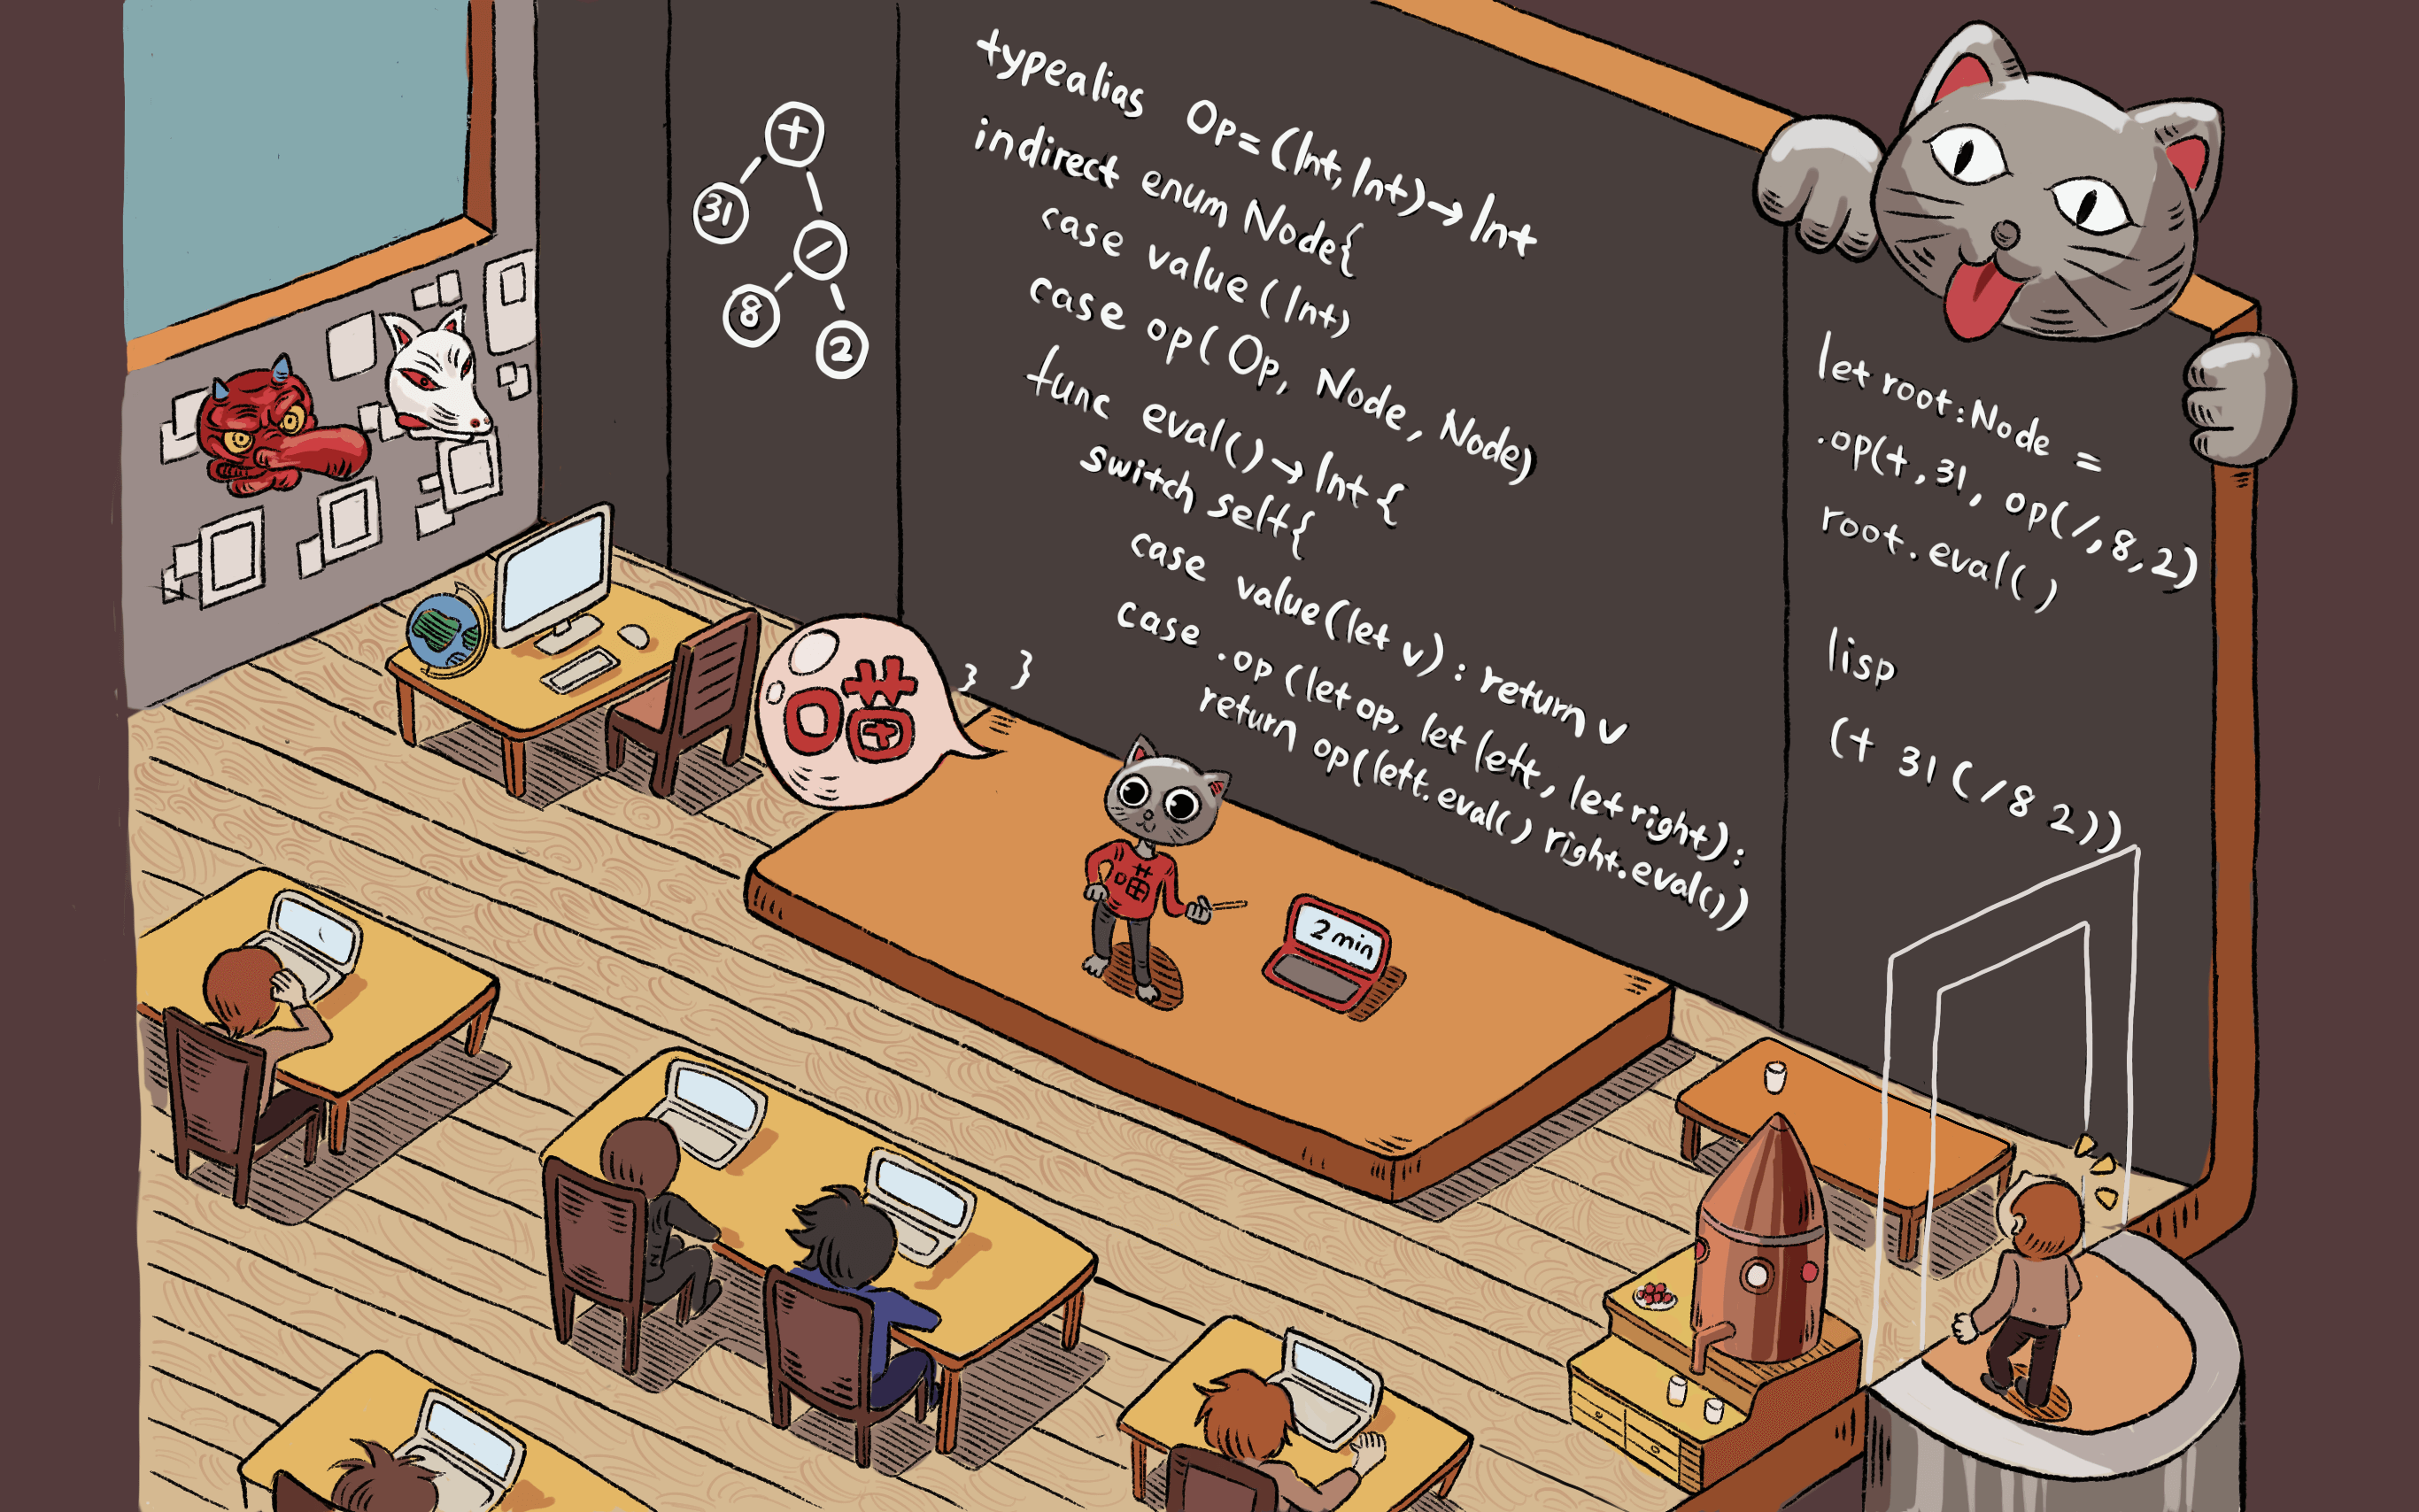 +
31
/
8
2
typealias Op=(Int,Int)→Int
indirect enum Node{
case value (Int)
case op( Op, Node, Node)
func eval()→Int{
switch self{
case value(let v): return v
case .op (let op, let left, let right):
return op(left.eval() right.eval())
} }
let root:Node =
.op(+,31, op(/,8,2)
root.eval()
lisp
(+ 31 (/8 2))
喵
喵
2 min